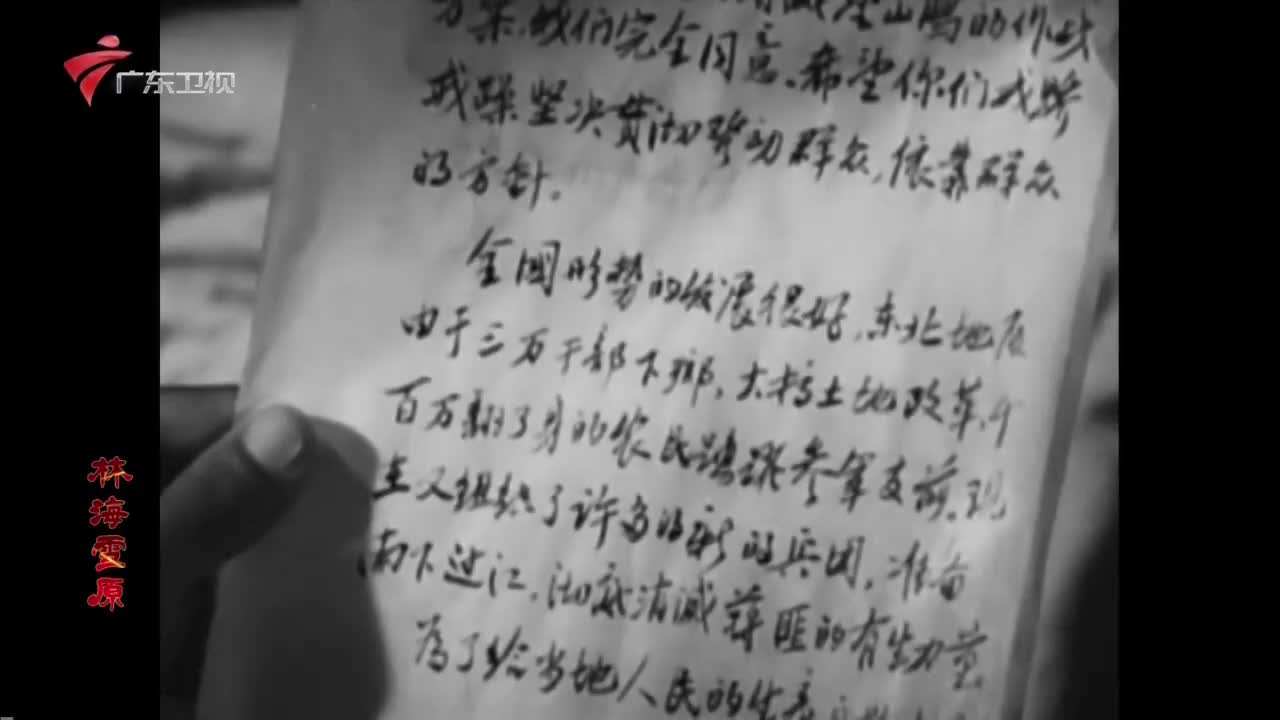 广东卫视
方案,我们完全同意、希望你们
坚决贯彻发动群众,依靠群众
的方针。
全国形势的发展很好,东北地区
由于三万干部下乡,大搞土地改革,
百万翻了身的农民踊跃参军支前,现
在又组织了许多的新的兵团,准备
南下过江,彻底消灭蒋匪的有生力量。
為了给当地人民的生产
林海雪原